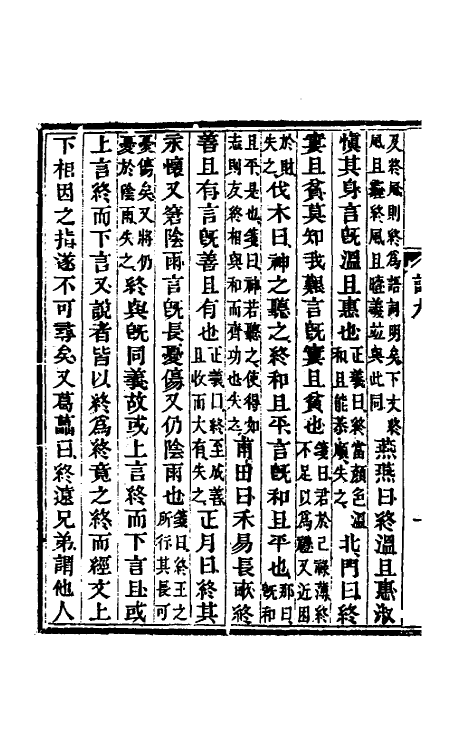 及終風則終爲語詞明矣下文終
風且霾終風且曀義竝與此同
燕燕曰終溫且惠淑
愼其身言旣溫且惠也
正義曰終當顏色溫
和且能恭順失之
北門曰終
窶且貧莫知我艱言旣窶且貧也
箋曰君於己祿薄終
不足以爲禮又近困
於財
失之
伐木曰神之聽之終和且平言旣和且平也
那曰
旣和
且平是也箋曰神若聽之使得如
志則友終相與和而齊功也失之
甫田曰禾易長畝終
善且有言旣善且有也
正義曰終至成善
且收而大有失之
正月曰終其
永懷又窘陰雨言旣長憂傷又仍陰雨也
箋曰終王之
所行其長可
憂傷矣又將仍
憂於陰雨失之
終與旣同義故或上言終而下言且或
上言終而下言又說者皆以終爲終竟之終而經文上
下相因之指遂不可尋矣又葛藟曰終遠兄弟謂他人